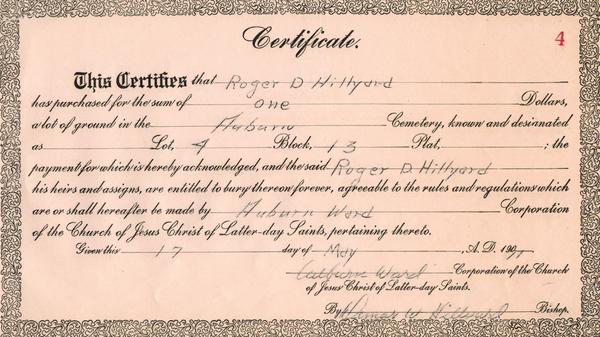 Certificate.
4
This Certifies that Roger D Hillyard
has purchased for the sum of one Dollars,
a lot of ground in the Auburn Cemetery, known and desianated
as Lot, 4 Block, 13 Plat, ; the
payment for which is hereby acknowledged, and the said Roger D Hillyard
his heirs and assigns, are entitled to bury thereon forever, agreeable to the rules and regulations which
are or shall hereafter be made by Auburn Ward Corporation
of the Church of Jesus Christ of Latter-day Saints, pertaining thereto.
Given this 17 day of May , A. D. 19
Auburn Ward Corporation of the Church
of Jesus Christ of Latter-day Saints.
By Bishop.